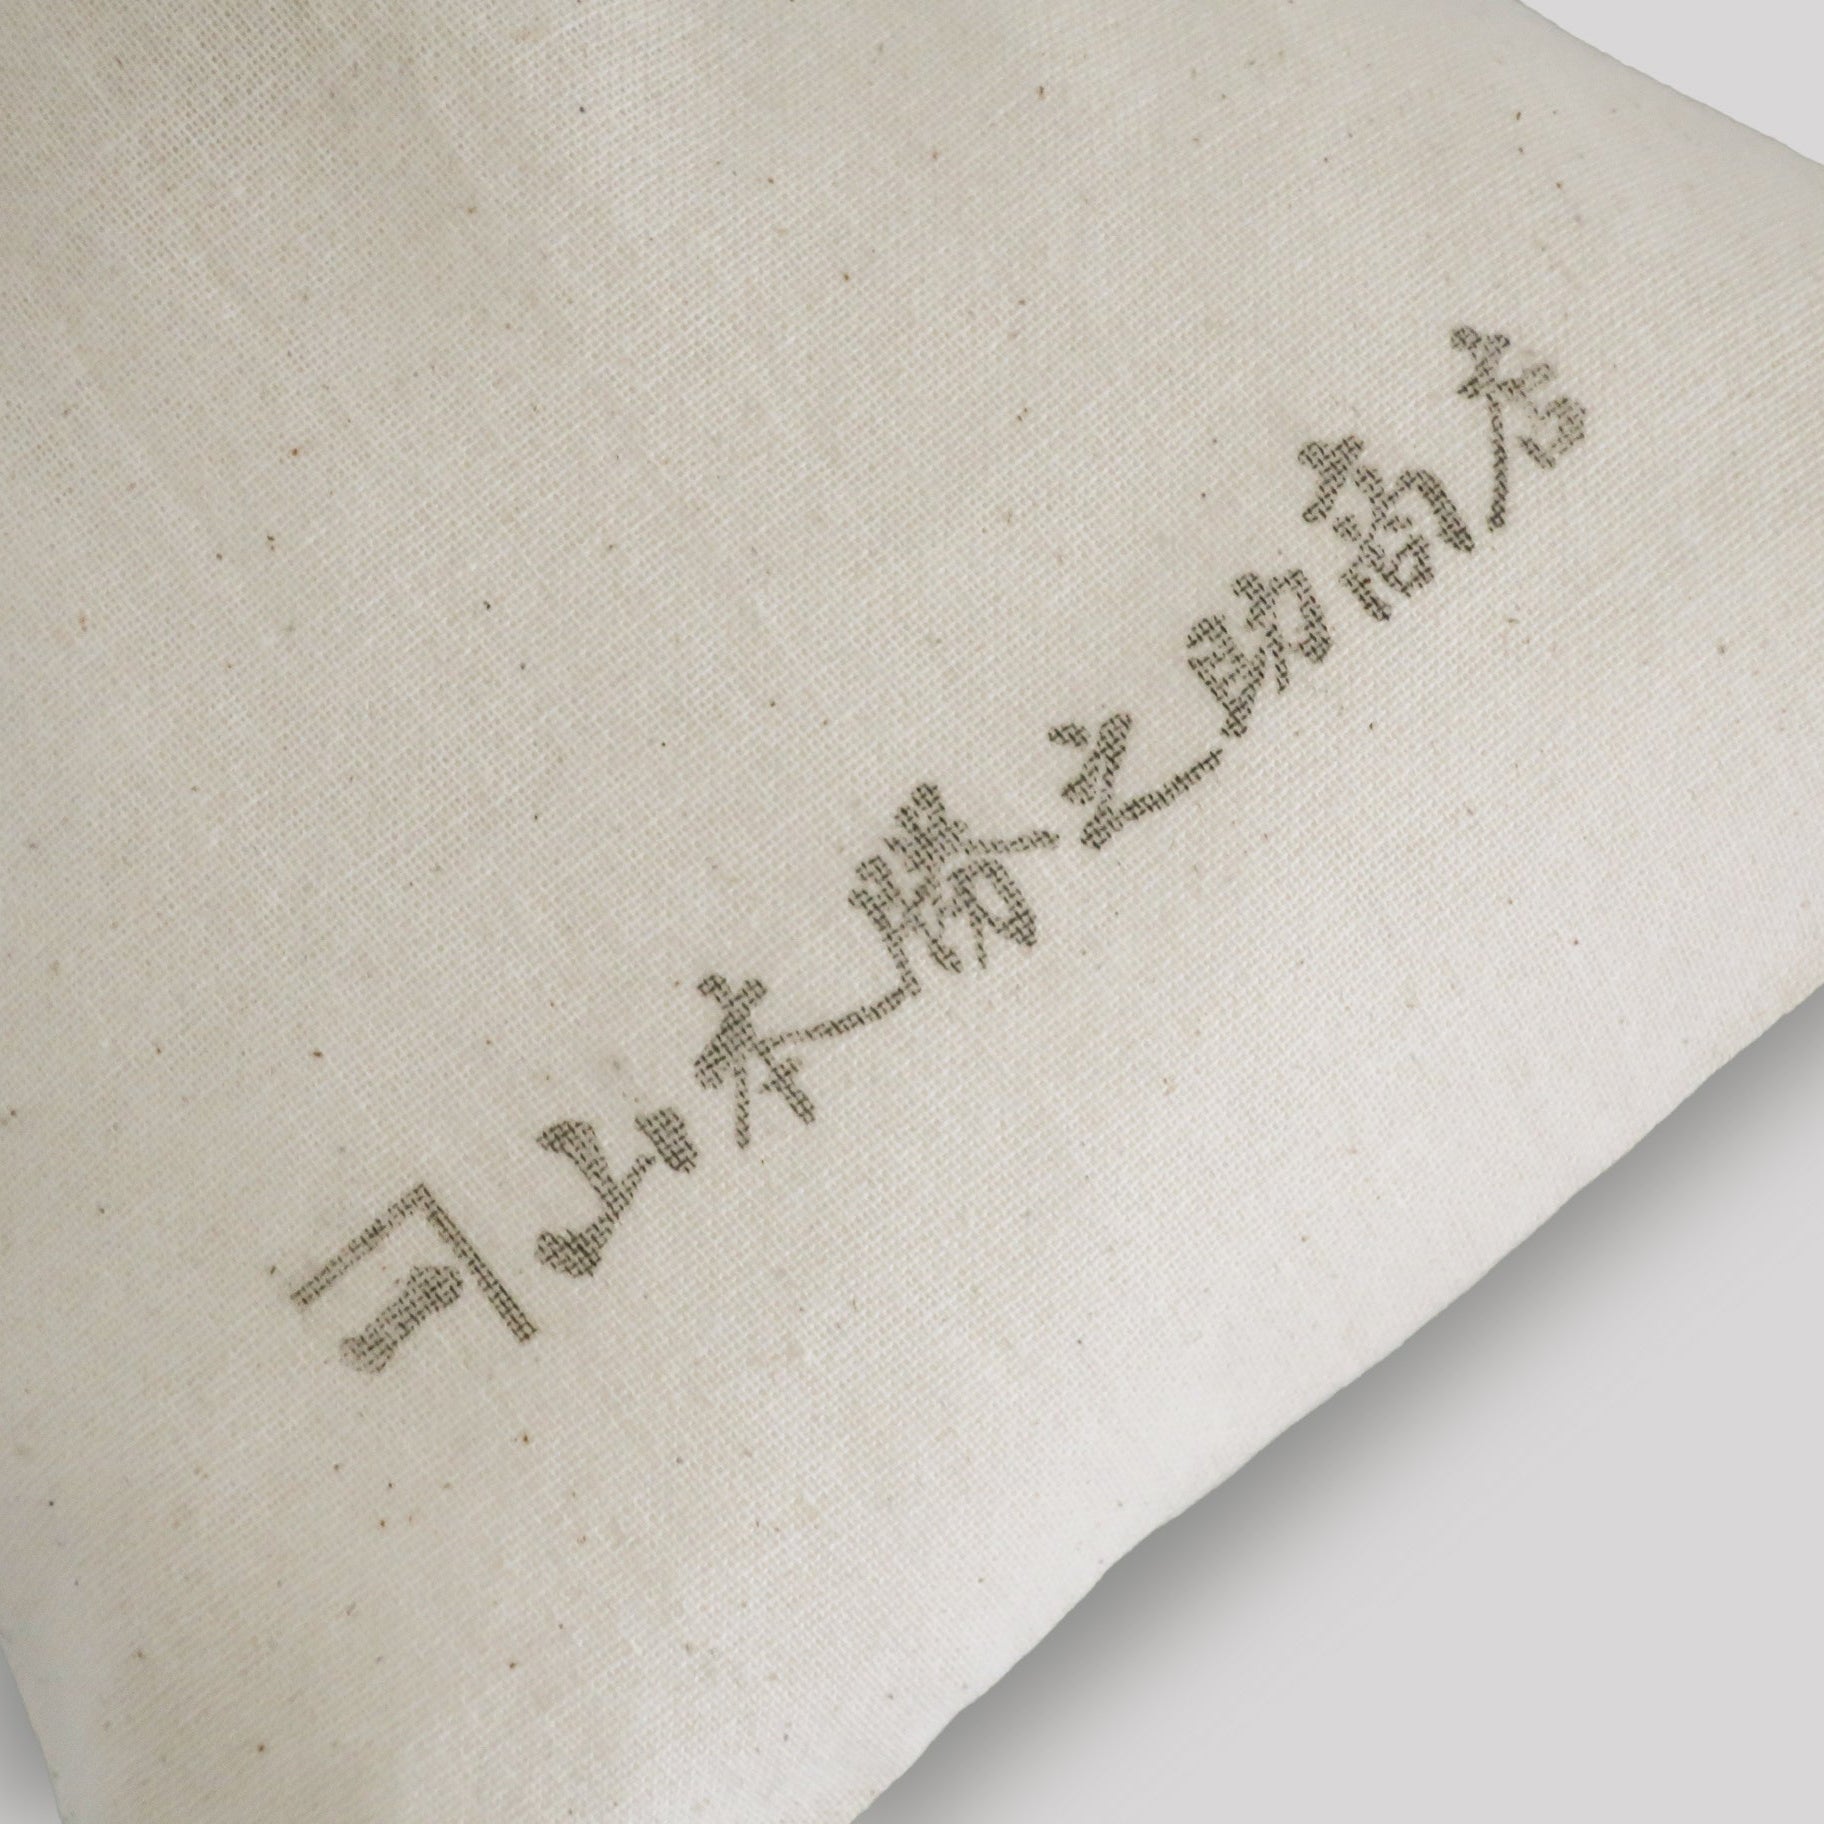 山本勝之助商店